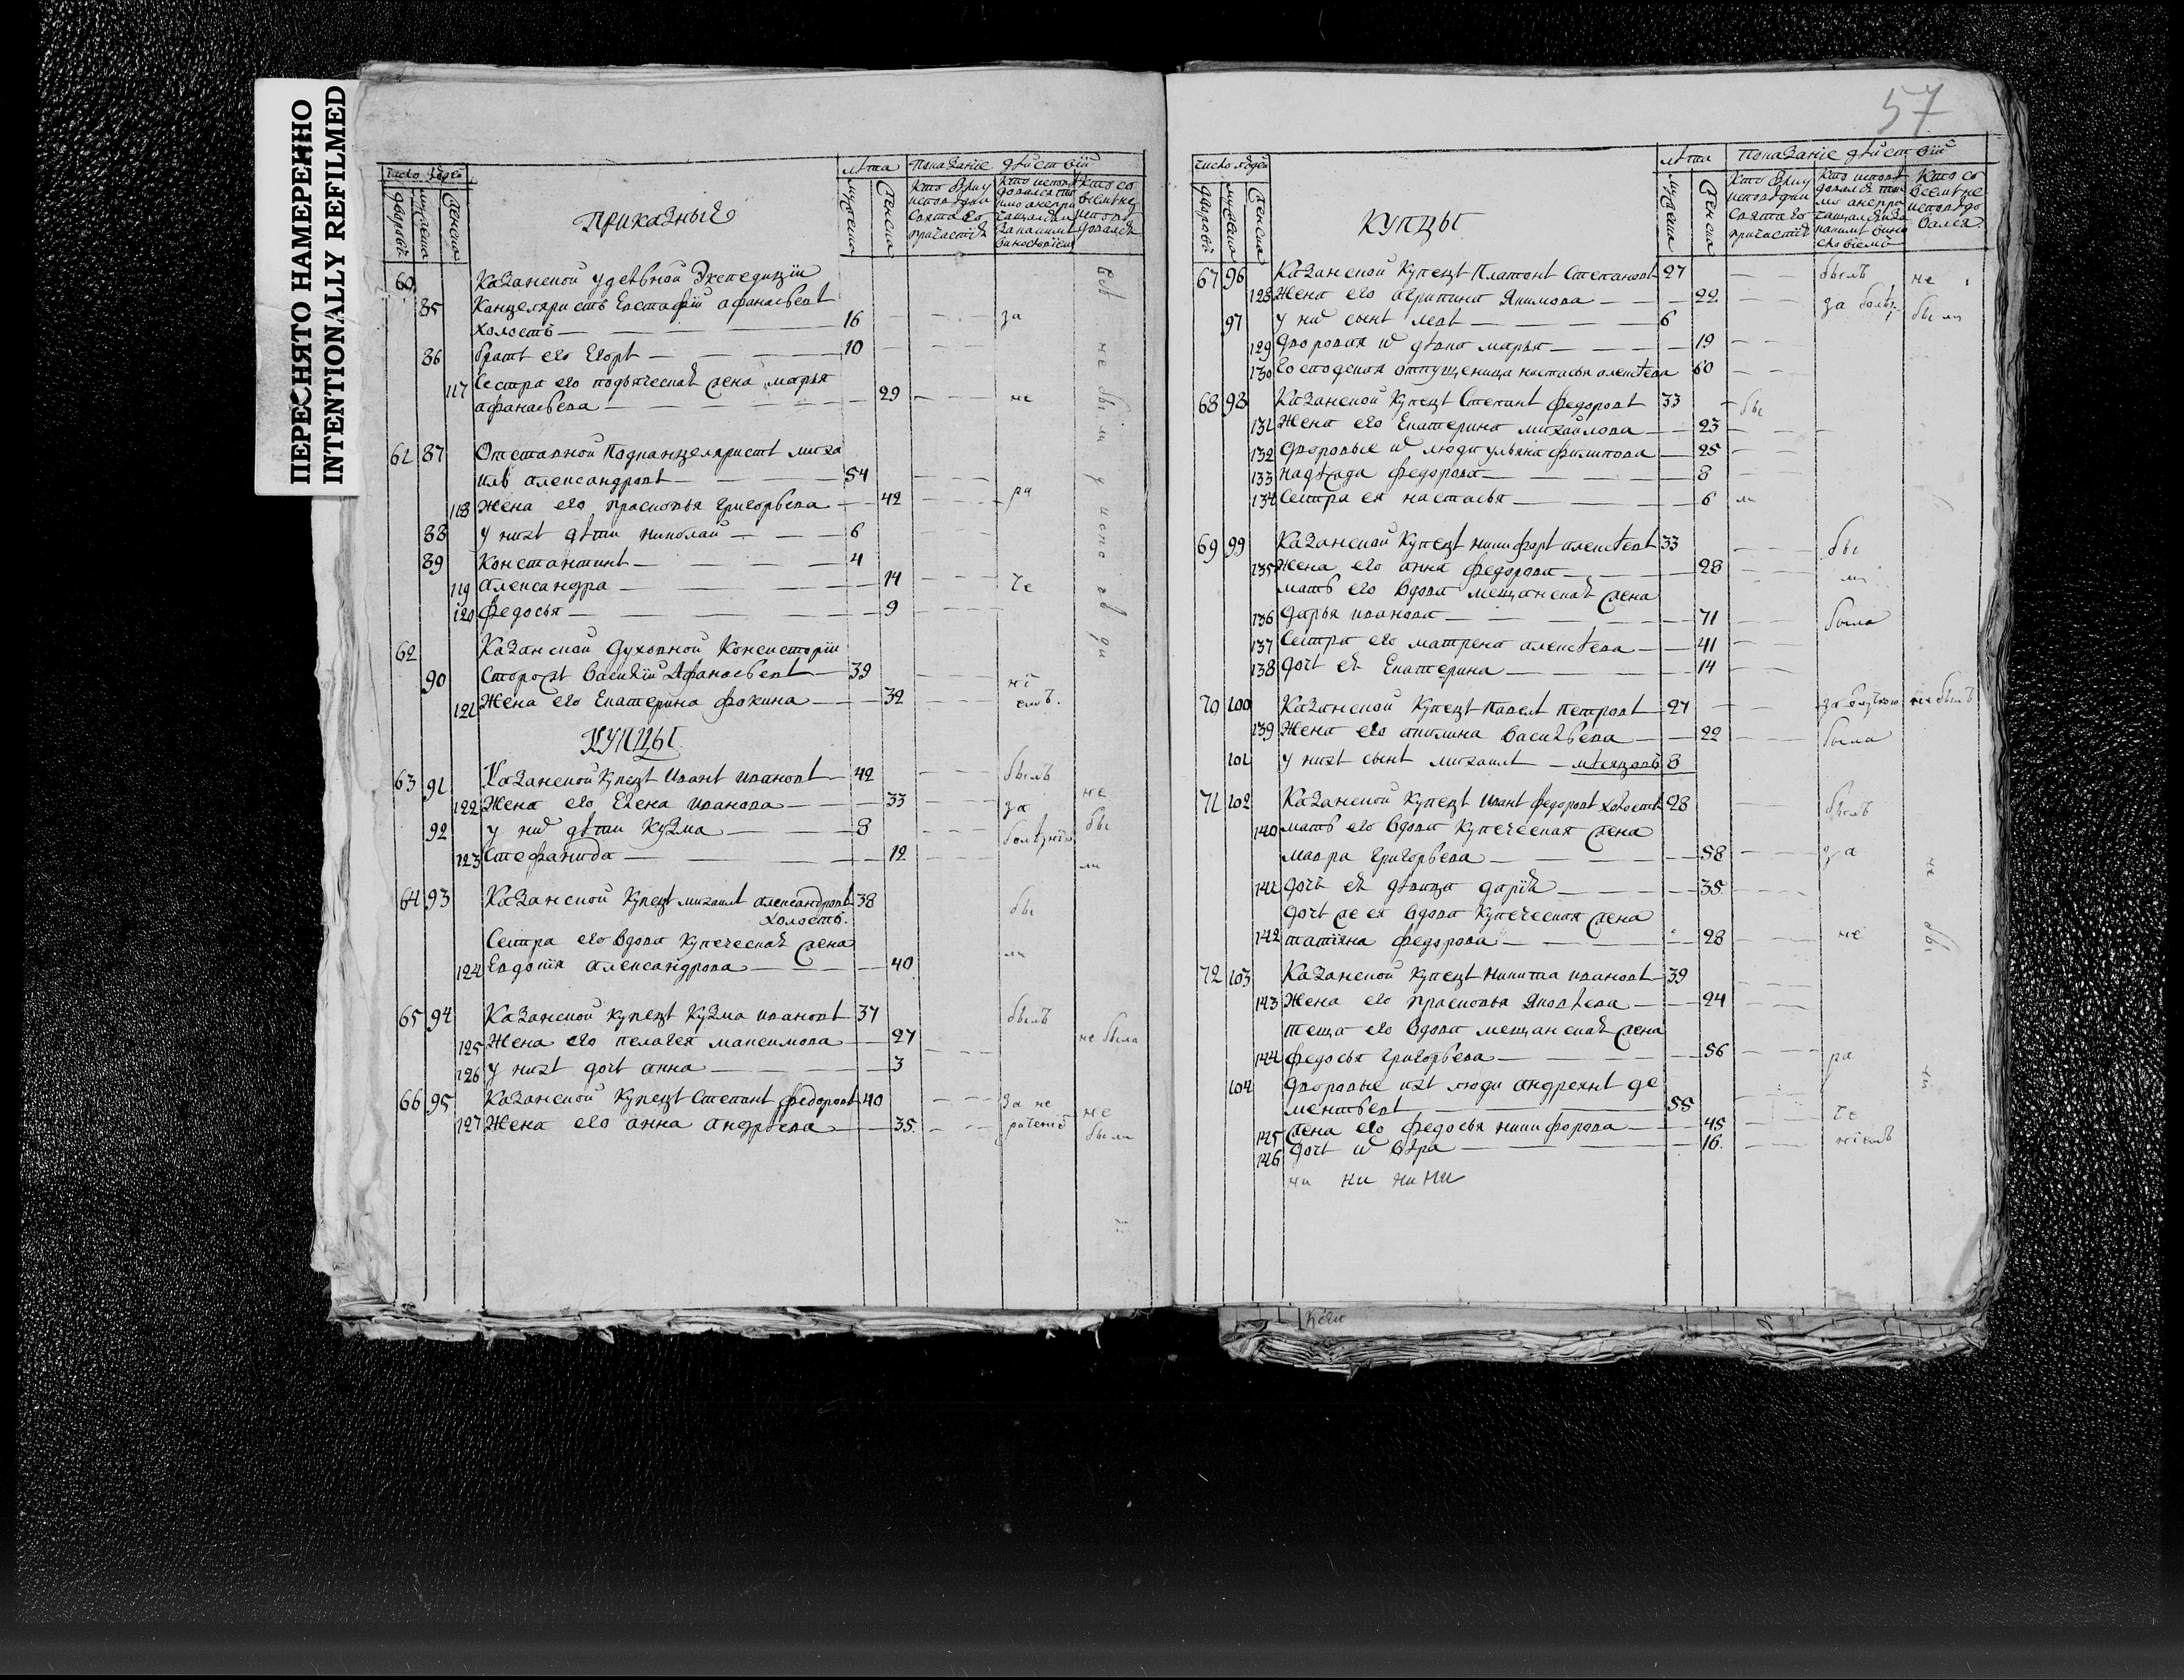 ПЕРЕСНЯТО НАМЕРЕННО
INTENTIONALLY REFILMED
число людей
лѣта показанiе дѣйствiй
дворовъ мужеска женска
ПРИКАЗНЫЯ
мужеска женска
60 Казанской удѣльной Экспедицiи
85 Канцеляристъ Евстафiй афанасьевъ
холостъ — 16 за
86 братъ его Егоръ — 10
Сестра его подъяческая жена марья
117 афанасьева — 29 не
61 87 Отставной Подканцеляристъ миха
илъ александровъ — 54
118 Жена его прасковья григорьева — 42 ра
88 у нихъ дѣти николай — 6
89 Константинъ — 4
119 александра — 14 че
120 Федосья — 9
62 Казанской Духовной Консисторiи
90 Сторожъ василiй Афанасьевъ — 39 нi
121 Жена его Екатерина фокина — 32 емъ.
КУПЦЫ
63 91 Казанской Купецъ Иванъ ивановъ — 42 былъ
122 Жена его Елена иванова — 33 за не
92 у них дѣти Кузма — 8 болѣзнiю бы
123 Стефанида — 12 ли
64 93 Казанской Купецъ михаилъ александровъ 38 бы
холостъ.
Сестра его вдова Купеческая жена ли
124 Евдокiя александрова — 40
65 94 Казанской купецъ Кузма ивановъ 37 былъ
125 Жена его пелагея максимова — 27 не была
126 у нихъ дочь анна — 3
66 95 Казанской Купецъ Степанъ федоровъ 40 за не не
127 Жена его анна андреева — 35 раченiе были
57
число людей
лѣта показанiе дѣйствiй
дворовъ мужеска женска
КУПЦЫ
мужеска женска
67 96 Казанской Купецъ Платонъ Степановъ 27 былъ не
128 Жена его агрипина Якимова — 22 за болѣз были
97 у них сынъ левъ — 6
129 Дворовая их дѣвка марья — 19
130 Господская отпущеница настасья алексѣева 60
68 98 Казанской Купецъ Степанъ федоровъ 33 бы
131 Жена его Екатерина михайлова — 23
132 Дворовые их люди ульяна филипова — 25
133 надежда федорова — 8
134 Сестра ея настасья — 6 ли
69 99 Казанской Купецъ никифоръ алексѣевъ 33 бы
135 Жена его анна федорова — 28 ли
мать его вдова мещанская жена
136 Дарья иванова — 71 была
137 Сестра его матрена алексѣева — 41
138 дочь ея Екатерина — 14
70 100 Казанской Купецъ Павелъ петровъ 27 за отлучкою не былъ
139 Жена его акилина васильева — 22 была
101 у нихъ сынъ михаилъ — мѣсяцовъ 8
71 102 Казанской Купецъ Иванъ федоровъ холостъ 28 былъ
140 мать его вдова Купеческая жена
мавра григорьева — 58 за
141 дочь ея дѣвица дарiя — 35
дочь же ея вдова Купеческая жена
142 татiяна федорова — 28 не
72 103 Казанской Купецъ никита ивановъ 39
143 Жена его прасковья Яковлева — 24
теща его вдова мещанская жена
144 федосья григорьева — 56 ра
104 Дворовые ихъ люди андреянъ де
ментьевъ — 55 че
145 жена его федосья никифорова — 45 нiемъ
146 дочь их вѣра — 16
ни ни ни ни